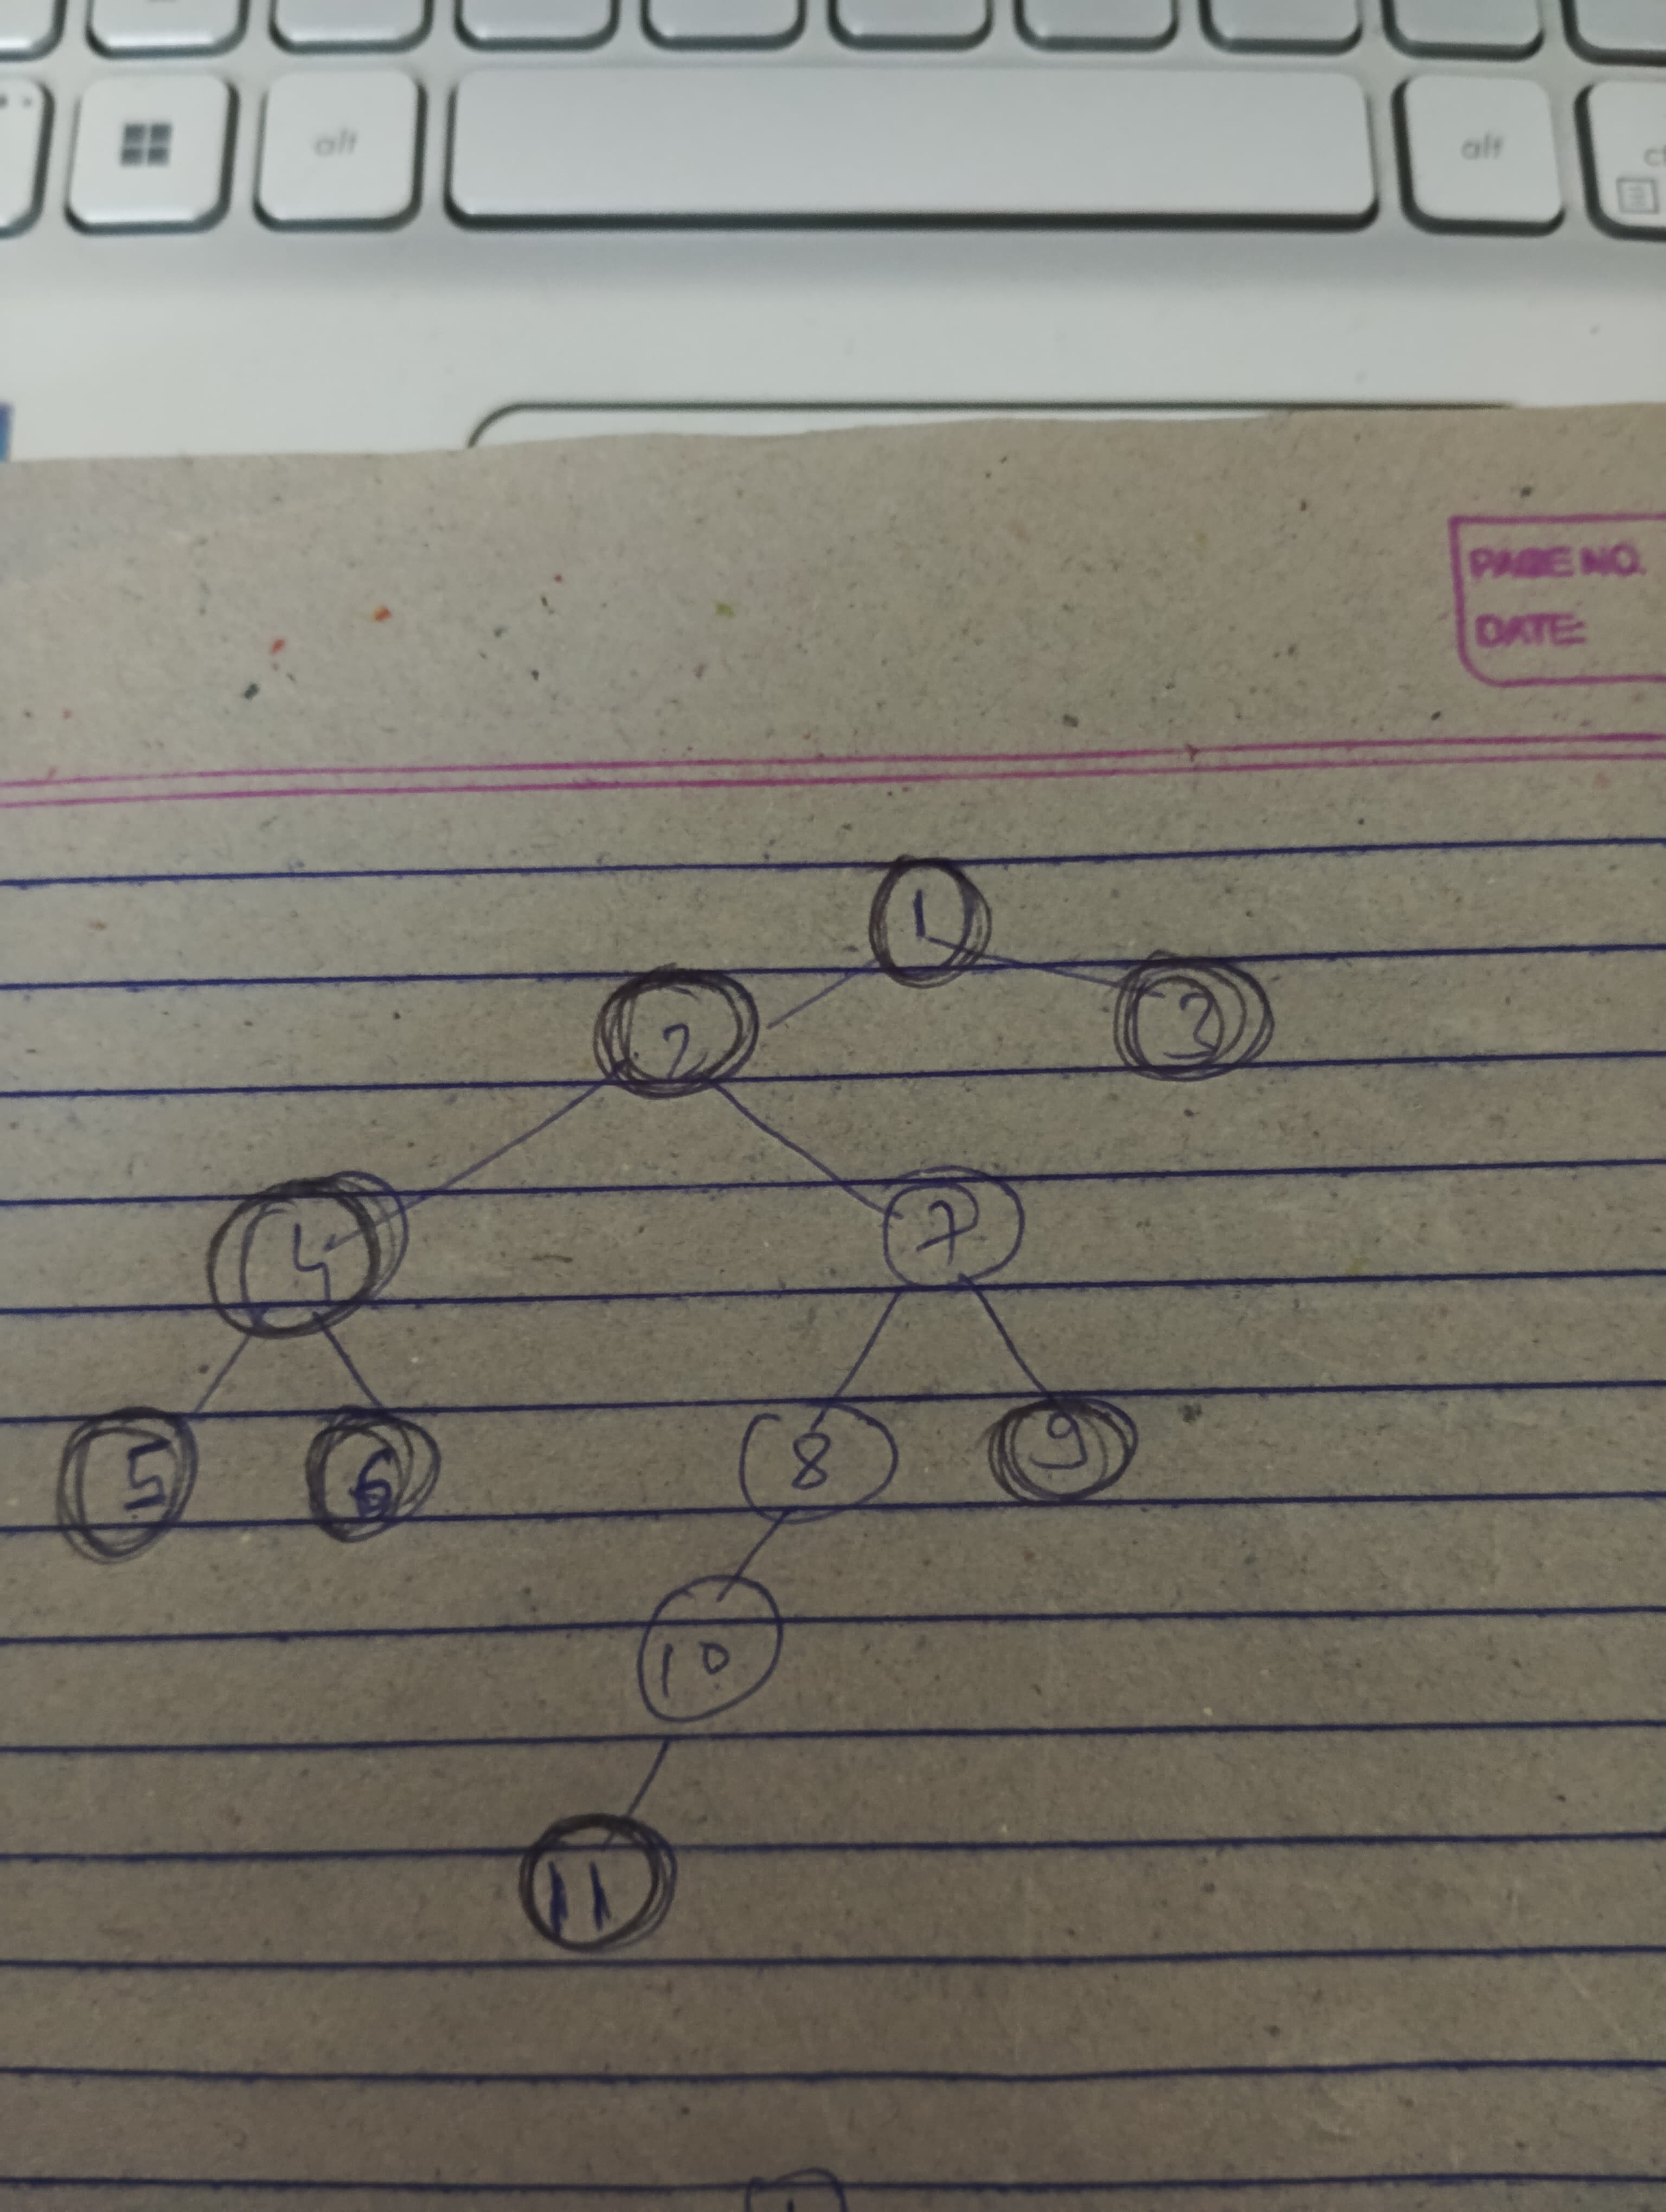 alt alt
PAGE NO.
DATE:
1
2 3
4 7
5 6 8 9
10
11